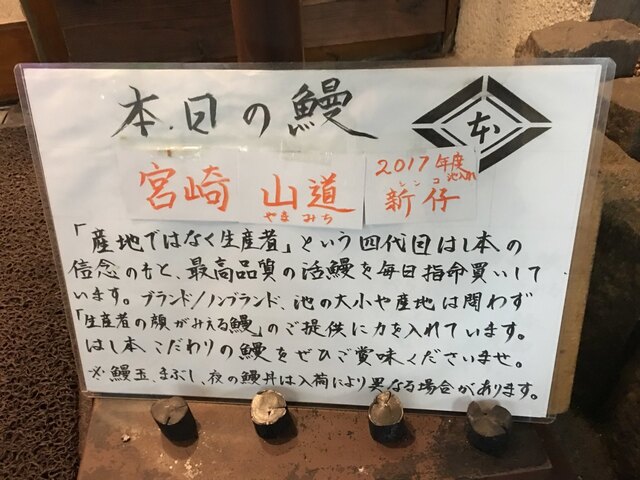 本日の鰻
本
宮崎
山道
やまみち
2017年度
池入れ
シンコ
新仔
「産地ではなく生産者」という四代目はし本の
信念のもと、最高品質の活鰻を毎日指命買いして
います。ブランド/ノンブランド、池の大小や産地は問わず
「生産者の顔がみえる鰻」のご提供に力を入れています。
はし本こだわりの鰻をぜひご賞味くださいませ。
※鰻玉、まぶし、夜の鰻丼は入荷により異なる場合があります。